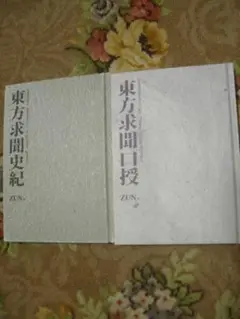 東方求聞史紀
ZUN
東方求聞口授
ZUN